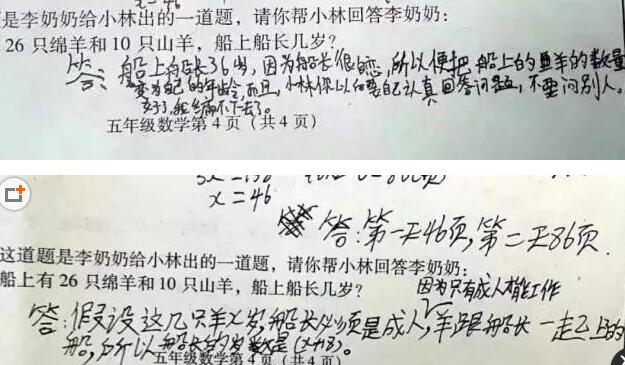 x=46
是李奶奶给小林出的一道题，请你帮小林回答李奶奶：
26只绵羊和10只山羊，船上船长几岁？
答：船上船长36岁，因为船长很懒，所以便把船上的羊的数量
变为自己的年龄，而且，小林你以后要自己认真回答问题，不要问别人。
五年级数学第4页（共4页）
x=46
答：第一天46页，第二天86页．
这道题是李奶奶给小林出的一道题，请你帮小林回答李奶奶：
船上有26只绵羊和10只山羊，船上船长几岁？
因为只有成人才能工作
答：假设这几只羊x岁，船长必须是成人，羊跟船长一起上的
船，所以船长的岁数是(x+18)。
五年级数学第4页（共4页）